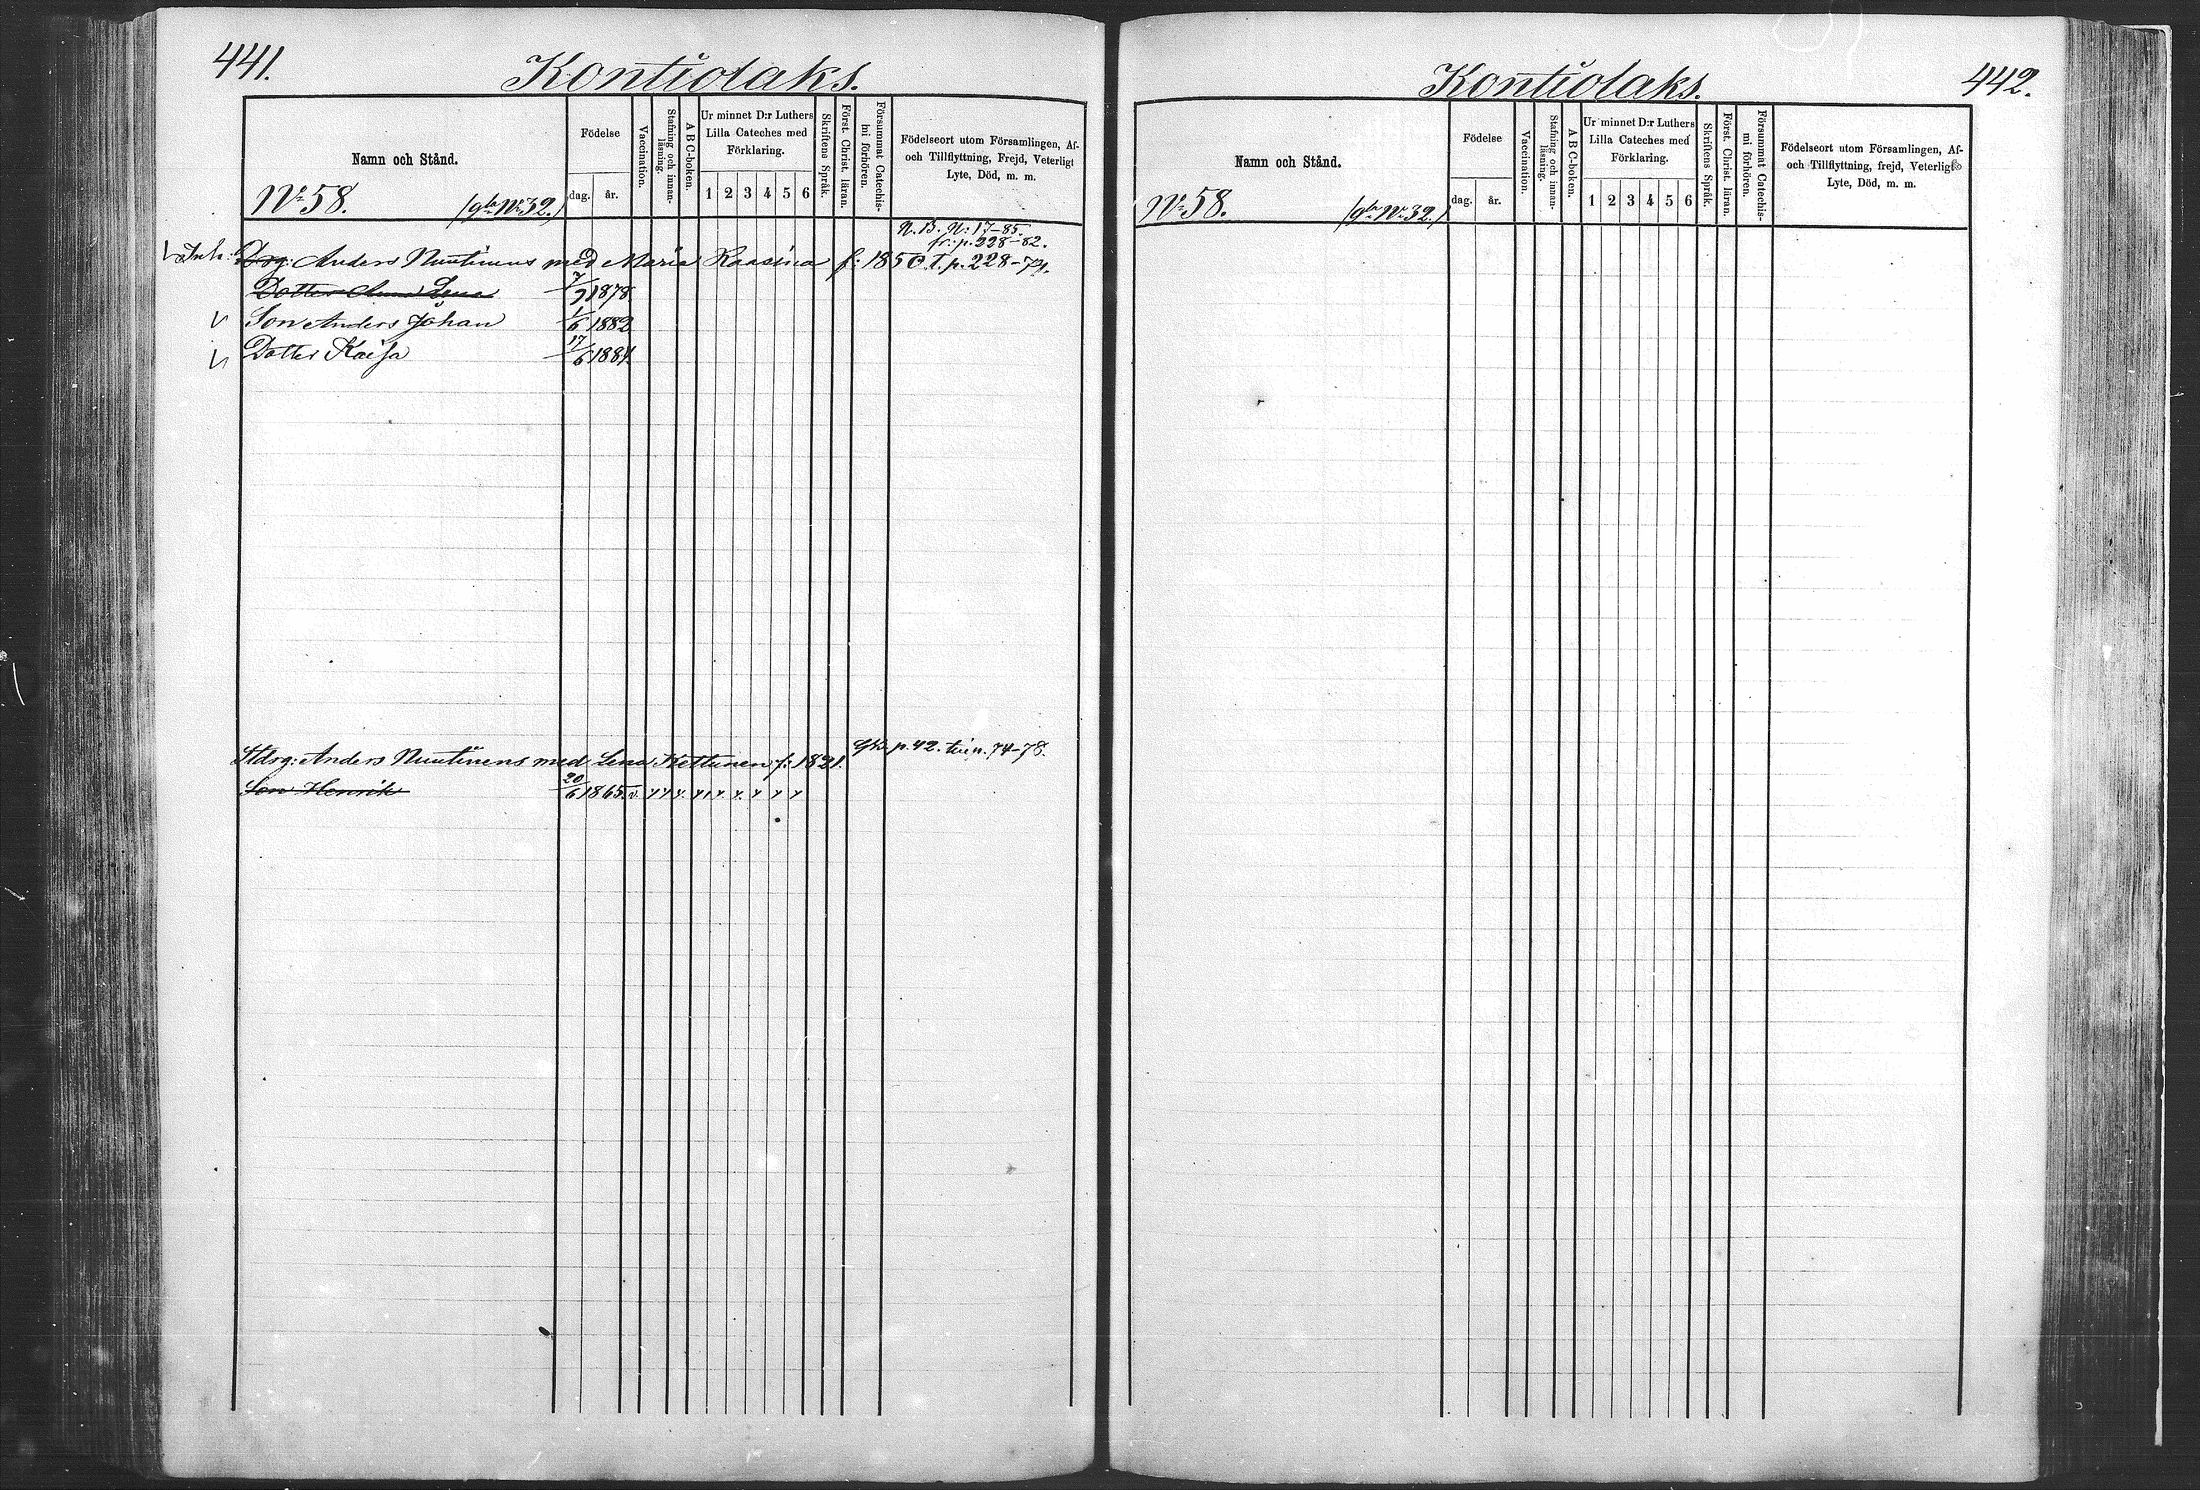 441.
Kontiolaks.
Namn och Stånd.
Födelse
dag.
år.
Vaccination.
Stafning och innan-
läsning.
A B C-boken.
Ur minnet D:r Luthers
Lilla Cateches med
Förklaring.
1 2 3 4 5 6
Skriftens Språk.
Först. Christ. läran.
Försummat Catechis-
mi förhören.
Födelseort utom Församlingen, Af-
och Tillflyttning, Frejd, Veterligt
Lyte, Död, m. m.
No 58. (gla No 32.)
N. B. N: 17-85.
fr: p. 228-82.
Inh: Drg: Anders Nuutinens med Maria Kaasina f: 1850. T. p. 228-74.
Dotter Anna Lena 7/9 1878
Son Anders Johan 1/6 1882
Dotter Kaisa 17/6 1884
Stdrg: Anders Nuutinens med Lena Kettunen f: 1821. p. 42. 74-78.
Son Henrik 20/6 1865. v.
Kontiolaks.
442.
Namn och Stånd.
Födelse
dag.
år.
Vaccination.
Stafning och innan-
läsning.
A B C-boken.
Ur minnet D:r Luthers
Lilla Cateches med
Förklaring.
1 2 3 4 5 6
Skriftens Språk.
Först. Christ. läran.
Försummat Catechis-
mi förhören.
Födelseort utom Församlingen, Af-
och Tillflyttning, frejd, Veterligt
Lyte, Död, m. m.
No 58. (gla No 32.)